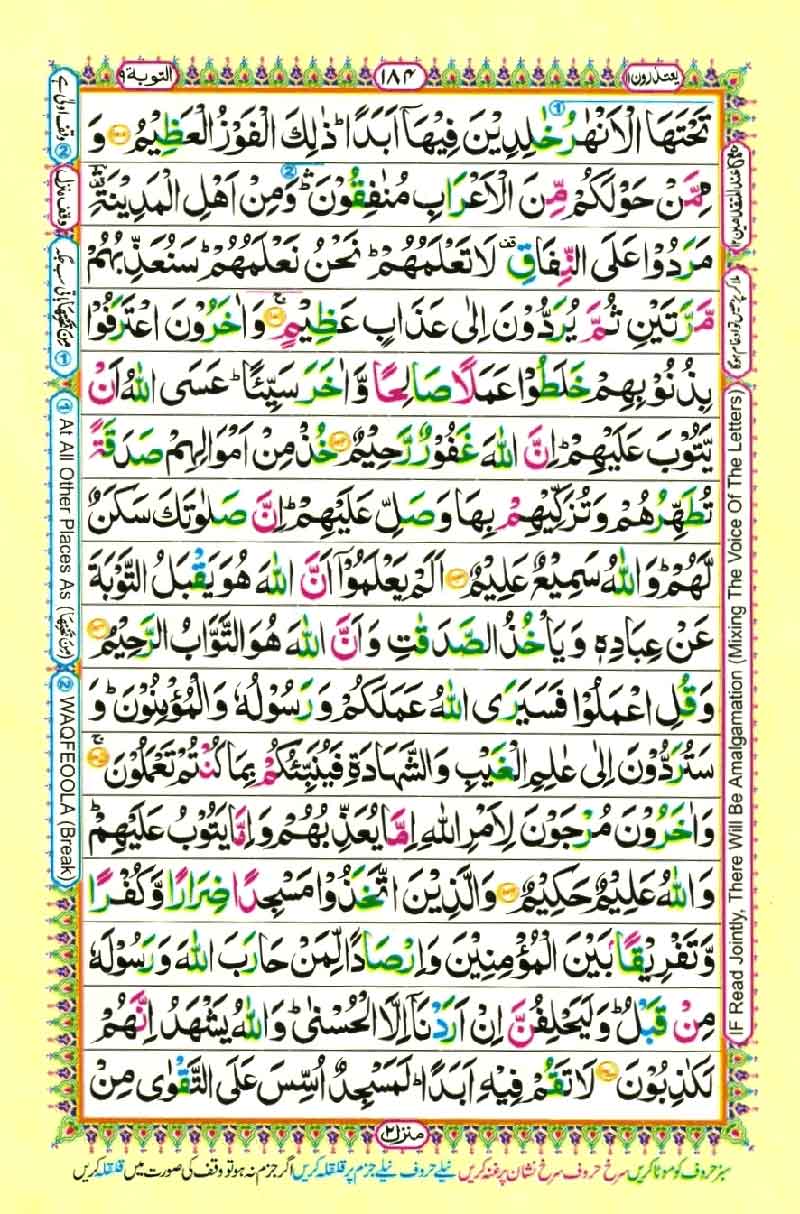 یعتذرون ۱۱
۱۸۴
التوبة ۹
تَحْتَهَا الْاَنْهٰرُ خٰلِدِیْنَ فِیْهَاۤ اَبَدًا ؕ ذٰلِكَ الْفَوْزُ الْعَظِیْمُ ﴿۱۰۰﴾ وَ
مِمَّنْ حَوْلَكُمْ مِّنَ الْاَعْرَابِ مُنٰفِقُوْنَ ۛؕ وَمِنْ اَهْلِ الْمَدِیْنَةِ ۛ۫
مَرَدُوْا عَلَی النِّفَاقِ ۫ لَا تَعْلَمُهُمْ ؕ نَحْنُ نَعْلَمُهُمْ ؕ سَنُعَذِّبُهُمْ
مَّرَّتَیْنِ ثُمَّ یُرَدُّوْنَ اِلٰی عَذَابٍ عَظِیْمٍ ﴿۱۰۱﴾ وَاٰخَرُوْنَ اعْتَرَفُوْا
بِذُنُوْبِهِمْ خَلَطُوْا عَمَلًا صَالِحًا وَّاٰخَرَ سَیِّئًا ؕ عَسَی اللّٰهُ اَنْ
یَّتُوْبَ عَلَیْهِمْ ؕ اِنَّ اللّٰهَ غَفُوْرٌ رَّحِیْمٌ ﴿۱۰۲﴾ خُذْ مِنْ اَمْوَالِهِمْ صَدَقَةً
تُطَهِّرُهُمْ وَتُزَكِّیْهِمْ بِهَا وَصَلِّ عَلَیْهِمْ ؕ اِنَّ صَلٰوتَكَ سَكَنٌ
لَّهُمْ ؕ وَاللّٰهُ سَمِیْعٌ عَلِیْمٌ ﴿۱۰۳﴾ اَلَمْ یَعْلَمُوْۤا اَنَّ اللّٰهَ هُوَ یَقْبَلُ التَّوْبَةَ
عَنْ عِبَادِهٖ وَیَاْخُذُ الصَّدَقٰتِ وَاَنَّ اللّٰهَ هُوَ التَّوَّابُ الرَّحِیْمُ ﴿۱۰۴﴾
وَقُلِ اعْمَلُوْا فَسَیَرَی اللّٰهُ عَمَلَكُمْ وَرَسُوْلُهٗ وَالْمُؤْمِنُوْنَ ؕ وَ
سَتُرَدُّوْنَ اِلٰی عٰلِمِ الْغَیْبِ وَالشَّهَادَةِ فَیُنَبِّئُكُمْ بِمَا كُنْتُمْ تَعْمَلُوْنَ ﴿۱۰۵﴾
وَاٰخَرُوْنَ مُرْجَوْنَ لِاَمْرِ اللّٰهِ اِمَّا یُعَذِّبُهُمْ وَاِمَّا یَتُوْبُ عَلَیْهِمْ ؕ
وَاللّٰهُ عَلِیْمٌ حَكِیْمٌ ﴿۱۰۶﴾ وَالَّذِیْنَ اتَّخَذُوْا مَسْجِدًا ضِرَارًا وَّكُفْرًا
وَّتَفْرِیْقًۢا بَیْنَ الْمُؤْمِنِیْنَ وَاِرْصَادًا لِّمَنْ حَارَبَ اللّٰهَ وَرَسُوْلَهٗ
مِنْ قَبْلُ ؕ وَلَیَحْلِفُنَّ اِنْ اَرَدْنَاۤ اِلَّا الْحُسْنٰی ؕ وَاللّٰهُ یَشْهَدُ اِنَّهُمْ
لَكٰذِبُوْنَ ﴿۱۰۷﴾ لَا تَقُمْ فِیْهِ اَبَدًا ؕ لَمَسْجِدٌ اُسِّسَ عَلَی التَّقْوٰی مِنْ
منزل ۲
IF Read Jointly, There Will Be Amalgamation (Mixing The Voice Of The Letters)
② وقف اولیٰ ہے
وقف منزل
① مِنْ تَحْتِهَا باقی سب جگہ
① At All Other Places As (مِنْ تَحْتِهَا)
② WAQFEOOLA (Break)
سبز حروف کو موٹا کریں سرخ حروف سرخ نشان پر غنہ کریں نیلے حروف نیلے جزم پر قلقلہ کریں اگر جزم نہ ہو تو وقف کی صورت میں قلقلہ کریں